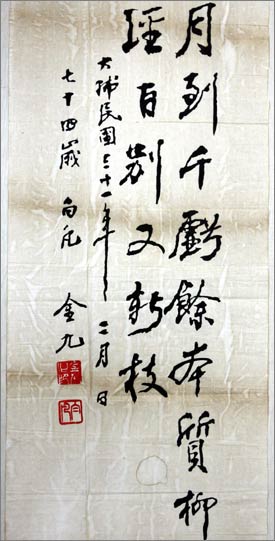 月到千虧餘本質柳
經百別又新枝
大韓民國三十一年二月 日
七十四歲 白凡 金九